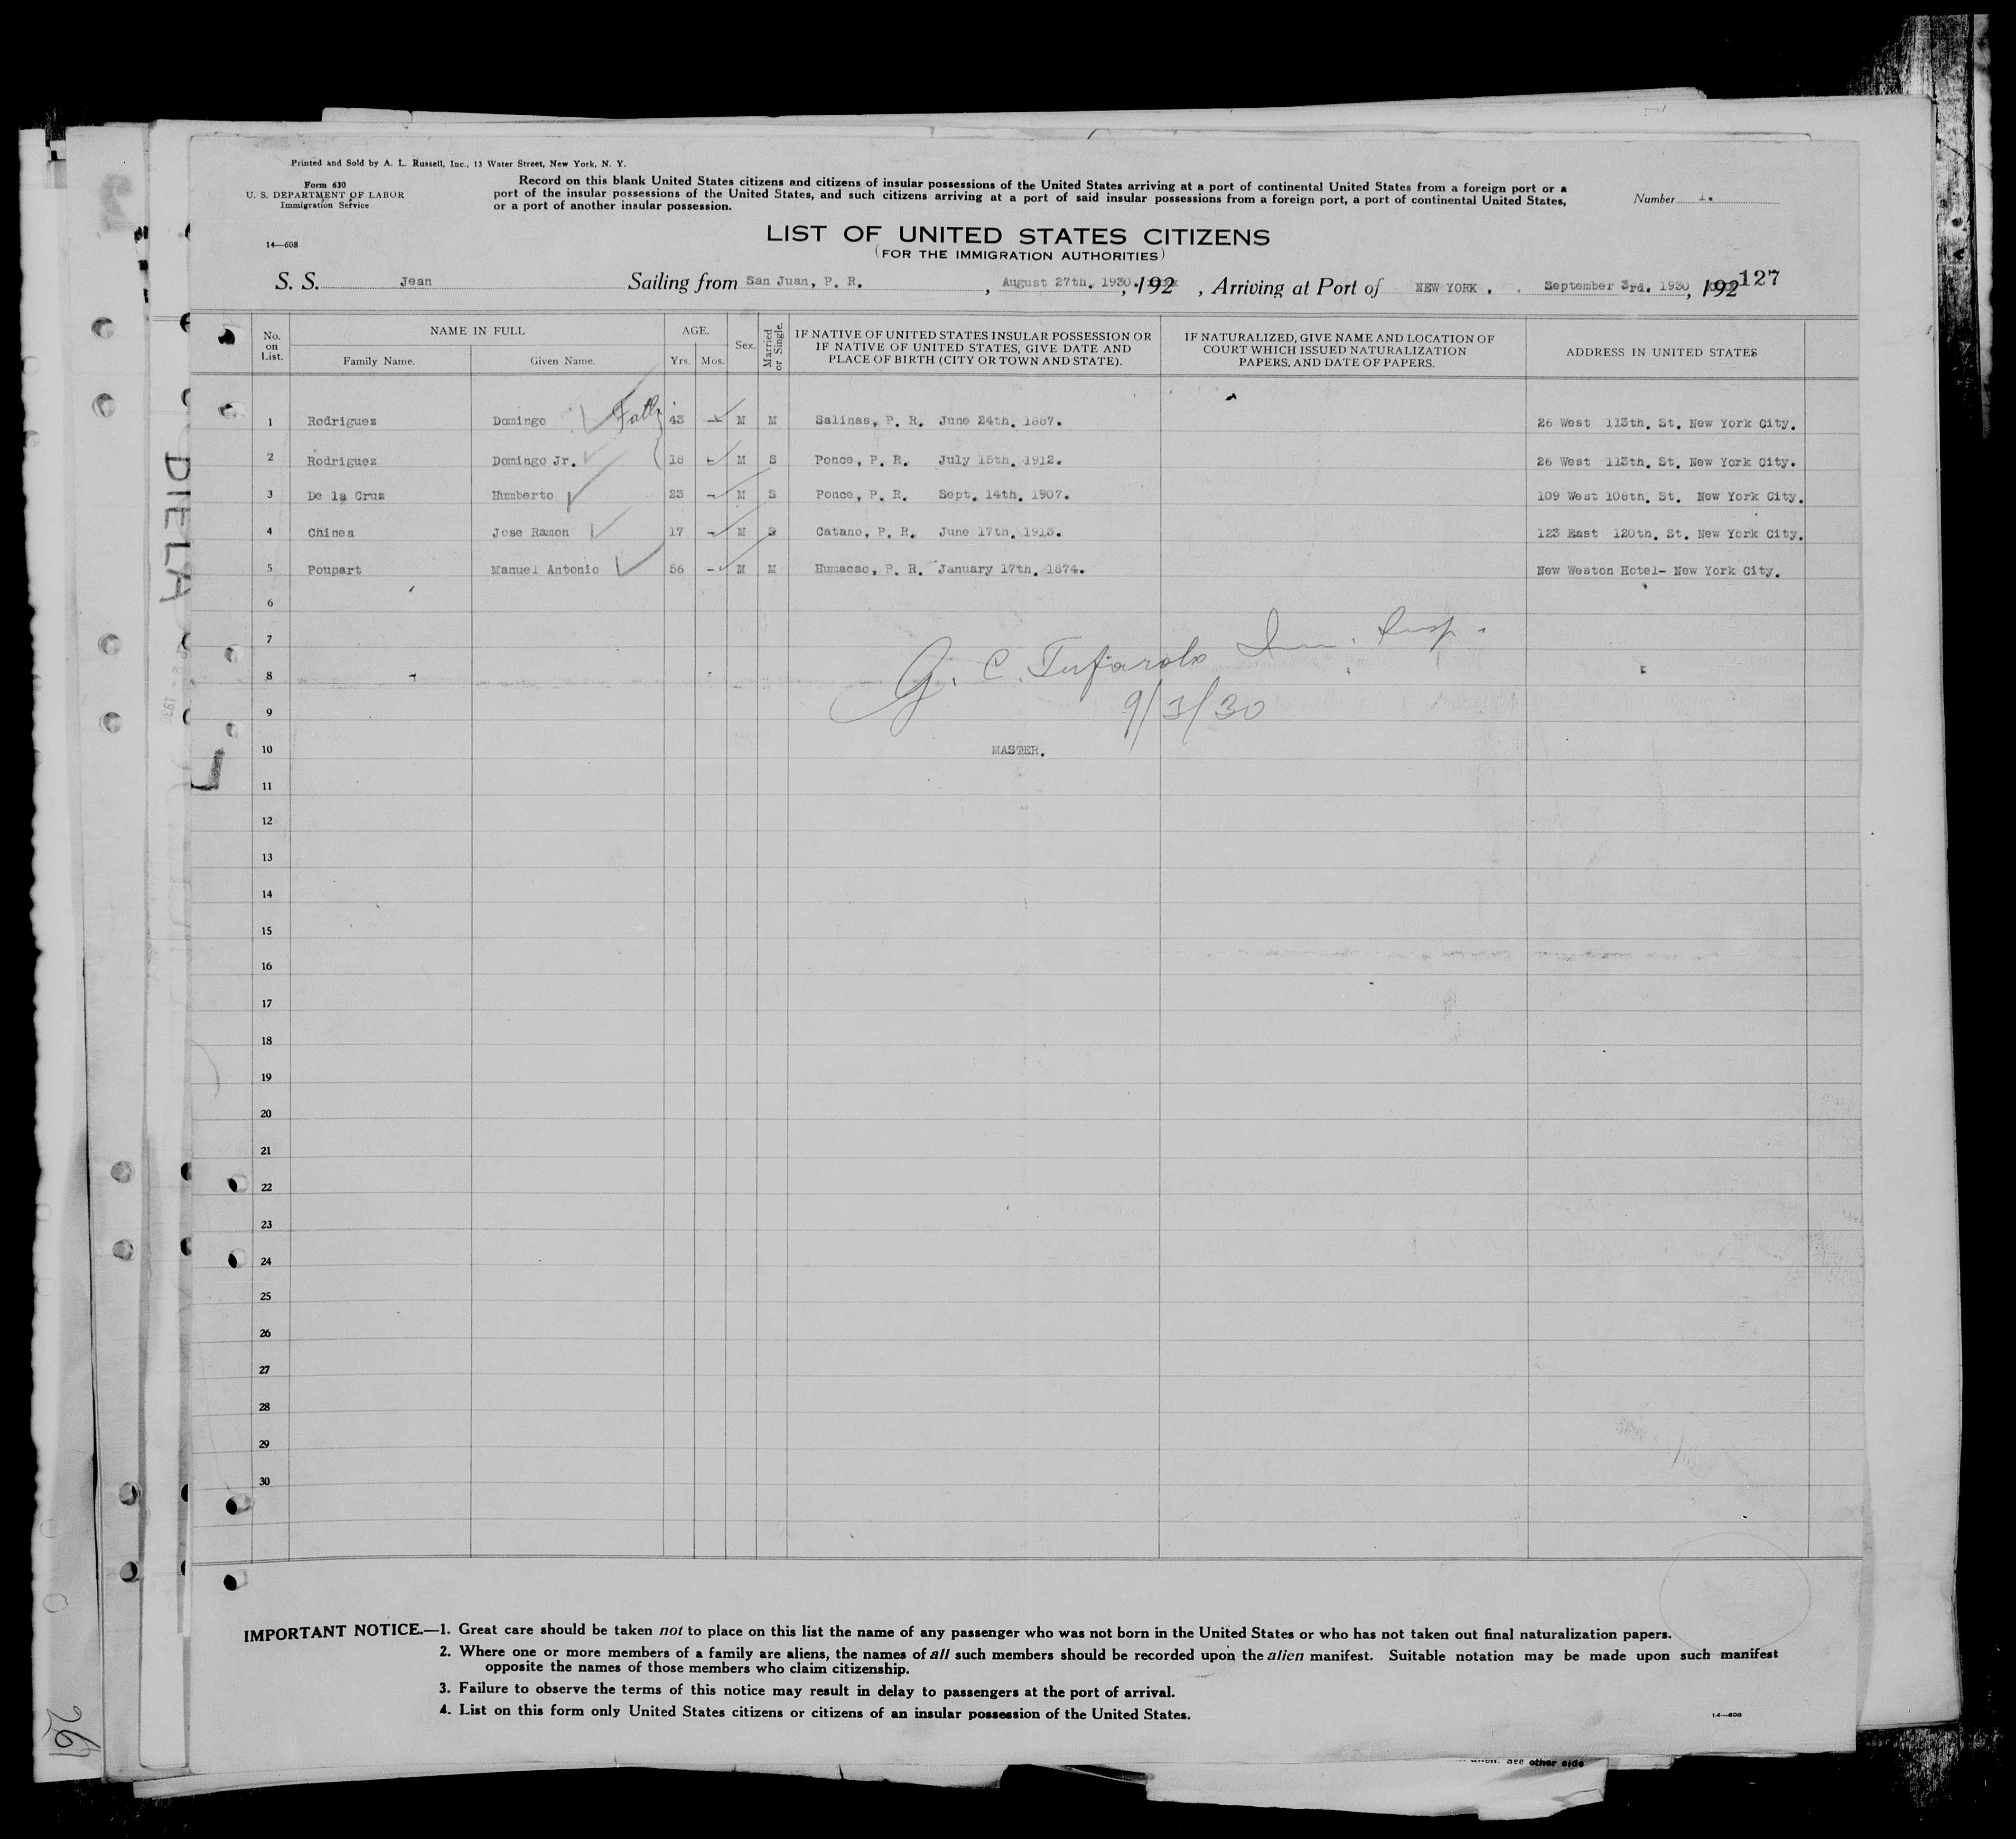 Printed and Sold by A. L. Russell, Inc., 13 Water Street, New York, N. Y.
Form 630
U. S. DEPARTMENT OF LABOR
Immigration Service
14—608
Record on this blank United States citizens and citizens of insular possessions of the United States arriving at a port of continental United States from a foreign port or a
port of the insular possessions of the United States, and such citizens arriving at a port of said insular possessions from a foreign port, a port of continental United States,
or a port of another insular possession.
Number 1.
LIST OF UNITED STATES CITIZENS
(FOR THE IMMIGRATION AUTHORITIES)
S. S. Jean Sailing from San Juan, P. R., August 27th. 1930., 192 , Arriving at Port of NEW YORK , September 3rd. 1930, 192 127
No. on List. NAME IN FULL AGE. Sex. Married or Single. IF NATIVE OF UNITED STATES INSULAR POSSESSION OR IF NATIVE OF UNITED STATES, GIVE DATE AND PLACE OF BIRTH (CITY OR TOWN AND STATE). IF NATURALIZED, GIVE NAME AND LOCATION OF COURT WHICH ISSUED NATURALIZATION PAPERS, AND DATE OF PAPERS. ADDRESS IN UNITED STATES
Family Name. Given Name. Yrs. Mos.
1 Rodriguez Domingo Fath 43 - M M Salinas, P. R. June 24th. 1887. 26 West 113th. St. New York City.
2 Rodriguez Domingo Jr. 18 - M S Ponce, P. R. July 15th. 1912. 26 West 113th. St. New York City.
3 De la Cruz Humberto 23 - M S Ponce, P. R. Sept. 14th. 1907. 109 West 108th. St. New York City.
4 Chinea Jose Ramon 17 - M S Catano, P. R. June 17th. 1913. 123 East 120th. St. New York City.
5 Poupart Manuel Antonio 56 - M M Humacao, P. R. January 17th. 1874. New Weston Hotel- New York City.
6
7
G. C. Tufarolo Im. Insp.
8
9
9/3/30
10 MASTER.
11
12
13
14
15
16
17
18
19
20
21
22
23
24
25
26
27
28
29
30
IMPORTANT NOTICE.—1. Great care should be taken not to place on this list the name of any passenger who was not born in the United States or who has not taken out final naturalization papers.
2. Where one or more members of a family are aliens, the names of all such members should be recorded upon the alien manifest. Suitable notation may be made upon such manifest
opposite the names of those members who claim citizenship.
3. Failure to observe the terms of this notice may result in delay to passengers at the port of arrival.
4. List on this form only United States citizens or citizens of an insular possession of the United States.
14—608
See other side
DIELA
1930
261